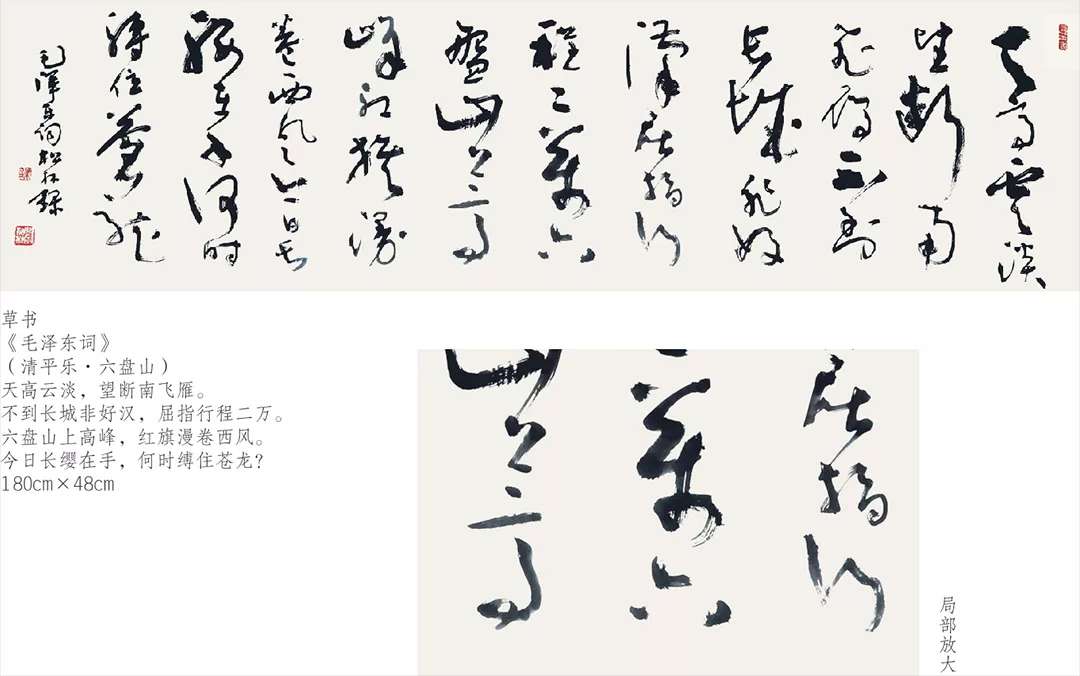 天高云淡
望断南
飞雁不到
长城非好
漢屈指行
程二萬六
盘山上高
峰红旗漫
卷西风今日长
缨在手何时
缚住苍龙
毛泽东词
草书
《毛泽东词》
（清平乐·六盘山）
天高云淡，望断南飞雁。
不到长城非好汉，屈指行程二万。
六盘山上高峰，红旗漫卷西风。
今日长缨在手，何时缚住苍龙？
180cm×48cm
屈指行
萬六
山上高
局部放大